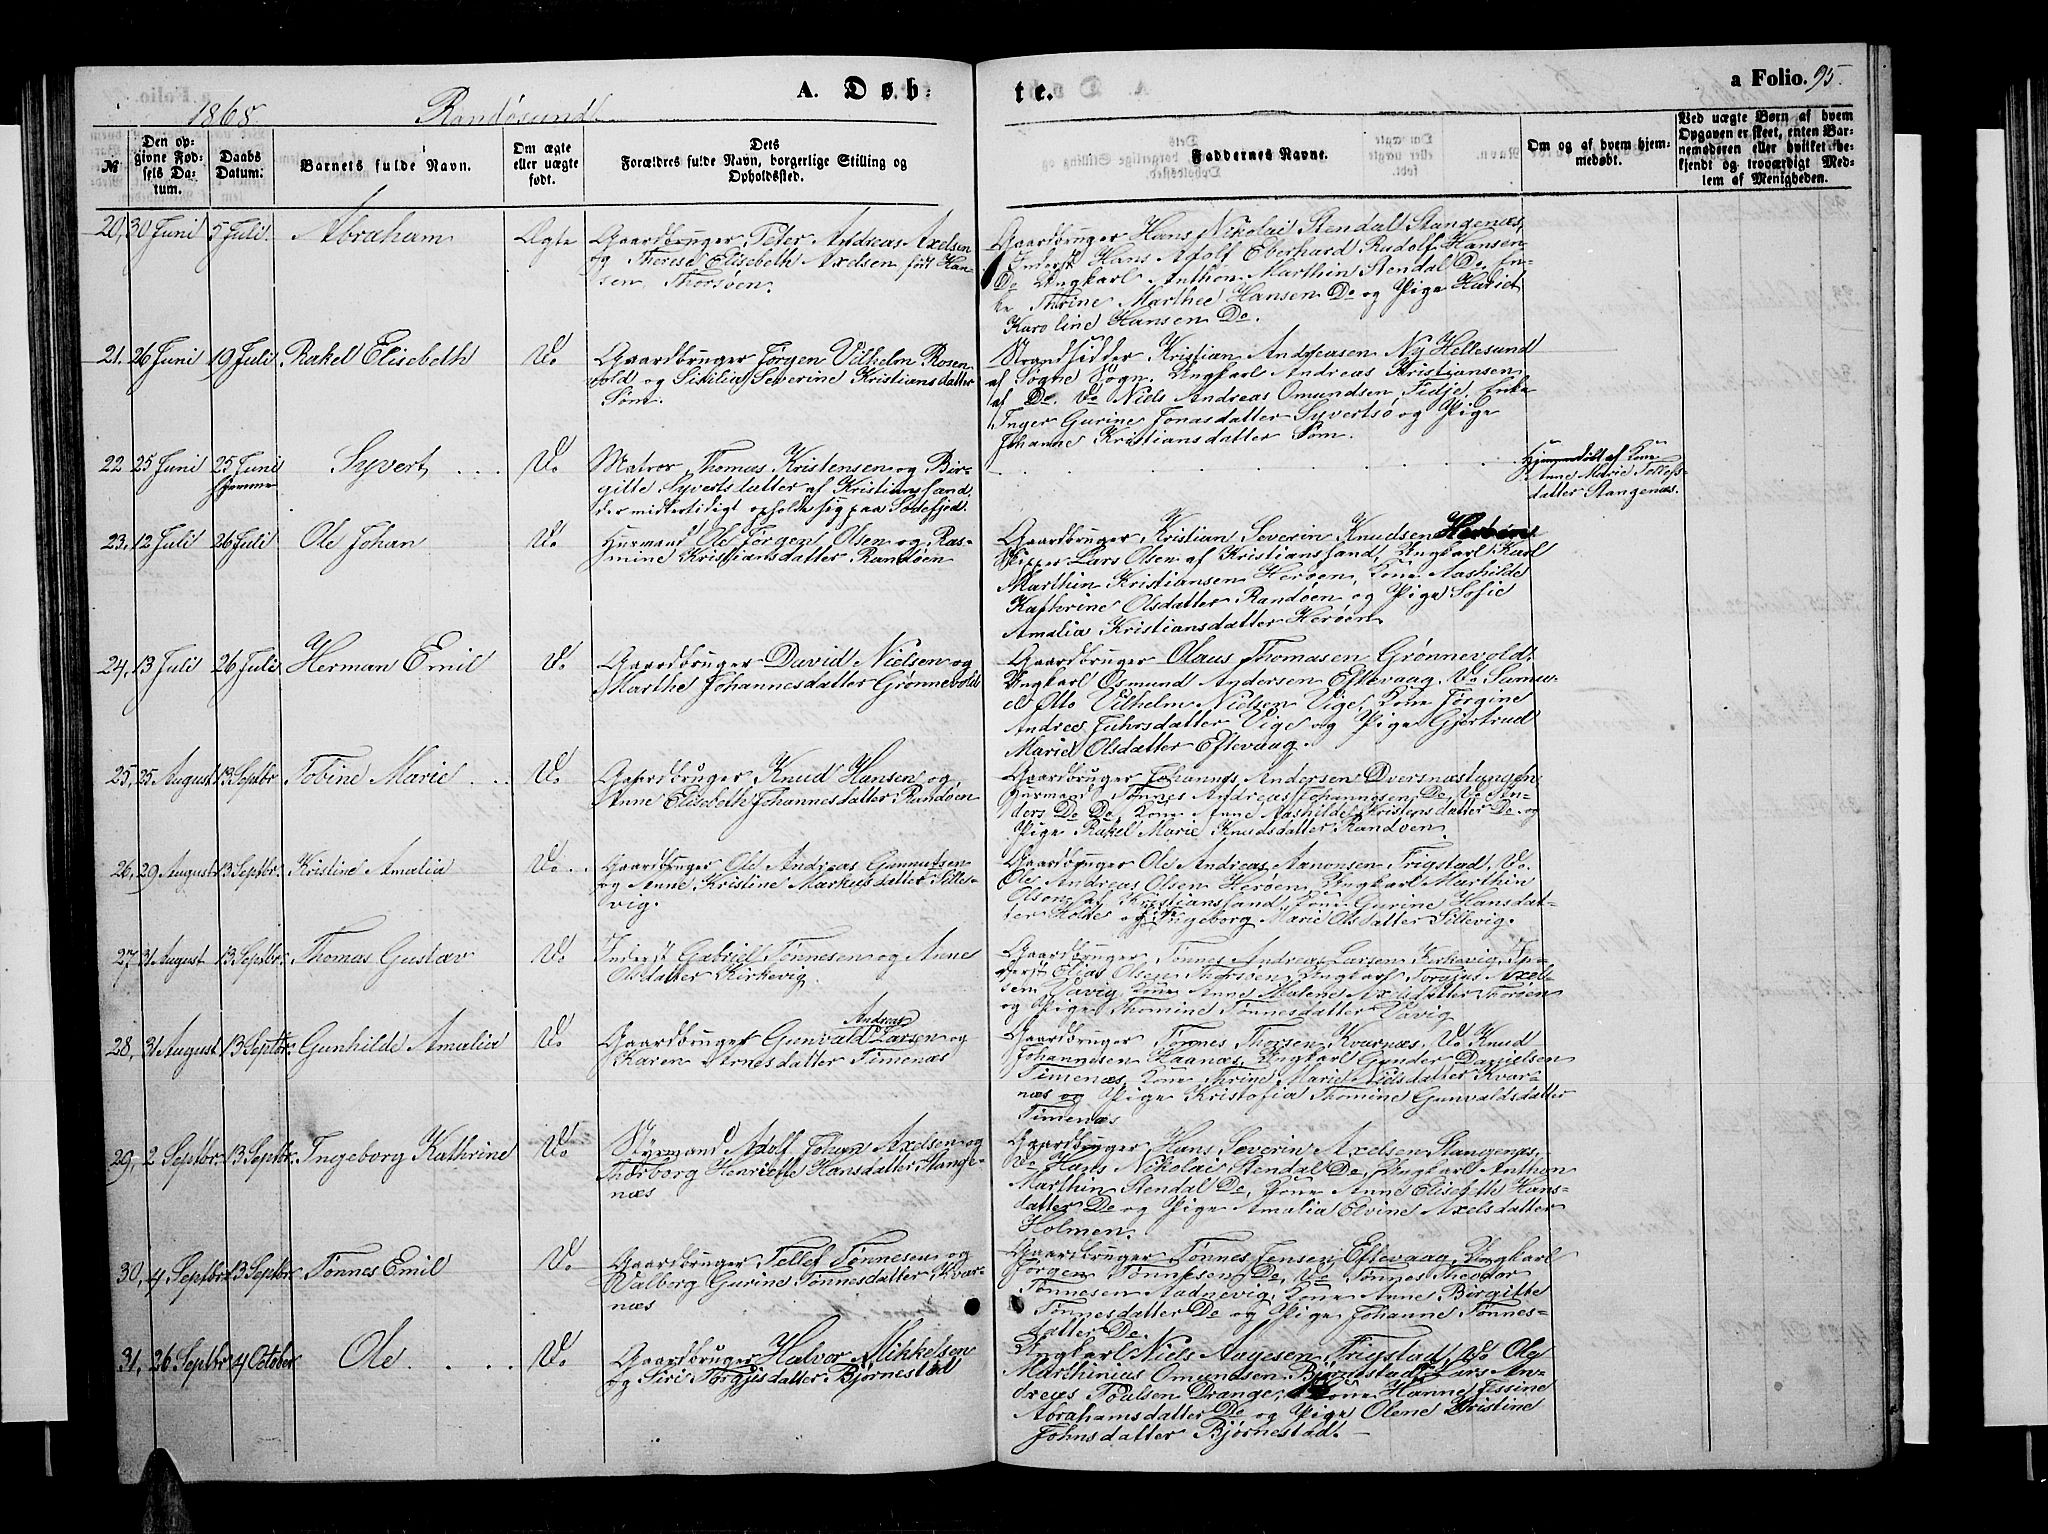 A. Døb-
te.
a Folio. 95.
1868.
Randøsund
№
Den op-
givne Fød-
sels Da-
tum.
Daabs
Datum.
Barnets fulde Navn.
Om ægte
eller uægte
født.
Dets
Forældres fulde Navn, borgerlige Stilling og
Opholdssted.
Faddernes Navne.
Om og af hvem hjem-
medøbt.
Ved uægte Børn af hvem
Opgaven er skeet, enten Bar-
nemoderen eller hvilket be-
kjendt og troværdigt Med-
lem af Menigheden.
20, 30 Juni 5 Juli. Abraham Ægte
Gaardbruger Peter Andreas Axelsen
og Therese Elisebeth Axelsen født Han-
sen, Thorsøen.
Gaardbruger Hans Nikolai Stendal Stangenæs,
Inderst Hans Adolf Eberhard Rudolf Hansen
Do Ungkarl Anthon Marthin Stendal Do En-
ke Thrine Marthee Hansen Do og Pige Hariet
Karoline Hansen Do.
21. 26 Juni 19 Juli Rakel Elisebeth Do
Gaardbruger Jørgen Vilhelm Rosen
vold og Sisilia Severine Kristiansdatter
Søm.
Strandsidder Kristian Andreasen Ny Hellesund
af Søgne Sogn. Ungkarl Andreas Kristiansen
af Do. Do Niels Andreas Omundsen Fidje, Enke
Inger Gurine Jonasdatter Syvertsø og Pige
Johanne Kristiansdatter Søm.
22 25 Juni 25 Juni Syvert Do
hjemme
Matros Thomas Kristensen og Bir-
gitte Syvertsdatter af Kristianssand,
der midlertidigt opholde sig paa Sodefjed.
Hjemmedøbt af Kone
Anne Marie Tollefs-
datter Stangenæs.
23. 12 Juli 26 Juli Ole Johan Do
Huusmand Ole Jørgen Olsen og Ras-
mine Kristiansdatter Randøen
Gaardbruger Kristian Severin Knudsen Herøen
Skipper Lars Olsen af Kristianssand, Ungkarl Karl
Marthin Kristiansen Herøen, Kone Aashilde
Kathrine Olsdatter Randøen og Pige Sofie
Amalia Kristiansdatter Herøen.
24, 13 Juli 26 Juli Herman Emil Do
Gaardbruger David Nielsen og
Marthe Johannesdatter Grønnevold
Gaardbruger Olaus Thomasen Grønnevold.
Ungkarl Osmund Andersen Eftevaag, Do Samu-
el Otto Vilhelm Nielsen Vige, Kone Jørgine
Andrea Fuhrsdatter Vige og Pige Gjertrud
Marie Olsdatter Eftevaag.
25, 25 August 13 Septbr Tobine Marie Do
Gaardbruger Knud Hansen og
Anne Elisebeth Johannesdatter Randøen
Gaardbruger Johannes Andersen Dversnæstangen
Huusmand Tønnes Andreas Johannesen Do, Do An-
ders Do Do, Kone Anne Aashilde Kristensdatter Do og
Pige Rakel Marie Knudsdatter Randøen.
26, 29 August 13 Septbr. Kristine Amalia Do
Gaardbruger Ole Andreas Gunnufsen
og Anne Kristine Markusdatter Sille-
vig.
Gaardbruger Ole Andreas Aanonsen Frigstad, Do.
Ole Andreas Olsen Herøen, Ungkarl Marthin
Olsen af Kristianssand, Kone Gurine Hansdat-
ter Holde og Pige Ingeborg Marie Olsdatter Sillevig.
27, 31 August 13 Septbr. Thomas Gustav Do
Inderst Gabriel Tønnesen og Anne
Olsdatter Kirkevig.
Gaardbruger Tønnes Andreas Larsen Kirkevig, In-
derst Elias Olsen Thorsøen, Ungkarl Torgjus Axel-
sen Vavig, Kone Anne Malene Axelsdatter Thorøen
og Pige Thomine Tønnesdatter Vavig
28, 31 August 13 Septbr. Gunhilde Amalia Do
Andreas
Gaardbruger Gunvald Larsen og
Karen Arnesdatter Timenæs
Gaardbruger Tønnes Thorsen Kvarnæs, Do Knud
Johannesen Haanæs, Ungkarl Gunder Danielsen
Timenæs, Kone Thrine Marie Nielsdatter Kvar-
næs og Pige Kristofia Thomine Gunvaldsdatter
Timenæs
29, 2 Septbr. 13 Septbr. Ingeborg Kathrine Do
Styrmand Adolf Johan Axelsen og
Thorborg Henriette Hansdatter Stange-
næs
Gaardbruger Hans Severin Axelsen Stangenæs,
Do Hans Nikolai Stendal Do, Ungkarl Anthon
Marthin Stendal Do, Kone Anne Elisebethe Hans-
datter Do og Pige Amalia Elvine Axelsdatter
Holmen.
30, 4 Septbr. 13 Septbr. Tønnes Emil Do
Gaardbruger Tellef Tønnesen og
Valberg Gurine Tønnesdatter Kvar-
næs
Gaardbruger Tønnes Jensen Eftevaag, Ungkarl
Jørgen Tønnesen Do, Do Tønnes Theodor
Tønnesen Aadnevig, Kone Anne Birgitte
Tønnesdatter Do og Pige Johanne Tønnes-
datter Do.
31, 26 Septbr 4 October Ole Do
Gaardbruger Halvor Mikkelsen
og Siri Torgjusdatter Bjørnestad
Ungkarl Niels Aagesen Frigstad, Do Ole
Marthinius Omundsen Bjørnestad, Do Lars An-
dreas Poulsen Drange, Kone Hanne Jessine
Abrahamsdatter Do og Pige Olene Kristine
Johnsdatter Bjørnestad.